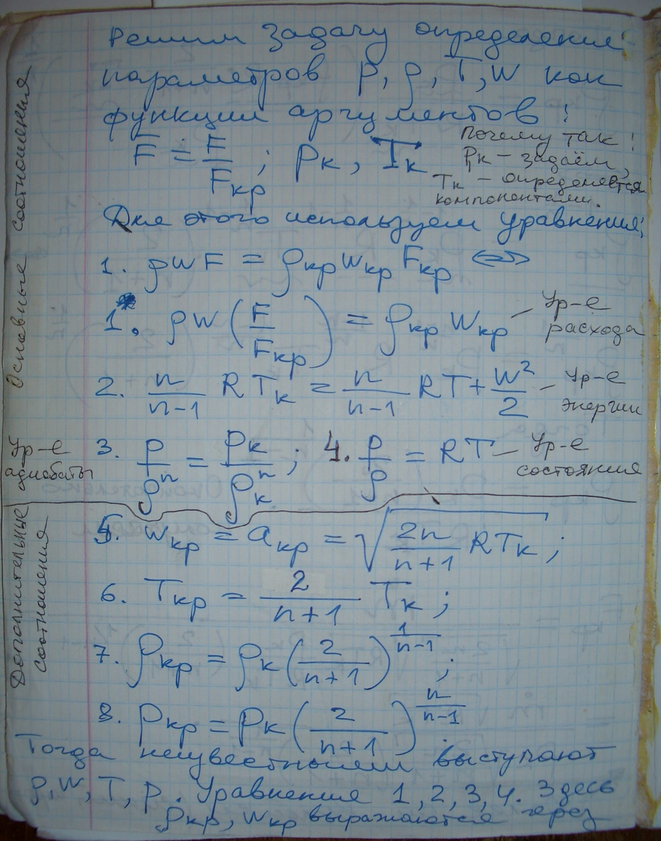 Решим задачу определения
параметров p, ρ, T, w как
функции аргументов!
F̄ = F/Fкр ; pк, Tк
Почему так!
pк – задаём,
Tк – определяется
компонентами.
Для этого используем уравнения:
Основные соотношения
1. ρwF = ρкр wкр Fкр ⇔
1*. ρw(F/Fкр) = ρкр wкр – Ур-е
расхода
2. n/(n-1) RTк = n/(n-1) RT + w²/2 – Ур-е
энергии
Ур-е
адиабаты
3. p/ρⁿ = pк/ρкⁿ ; 4. p/ρ = RT – Ур-е
состояния
Дополнительные
соотношения
5. wкр = aкр = √(2n/(n+1) RTк) ;
6. Tкр = 2/(n+1) Tк ;
7. ρкр = ρк(2/(n+1))^(1/(n-1)) ;
8. pкр = pк(2/(n+1))^(n/(n-1)) .
Тогда неизвестными выступают
ρ, w, T, p. Уравнения 1, 2, 3, 4. Здесь
ρкр, wкр выражаются через